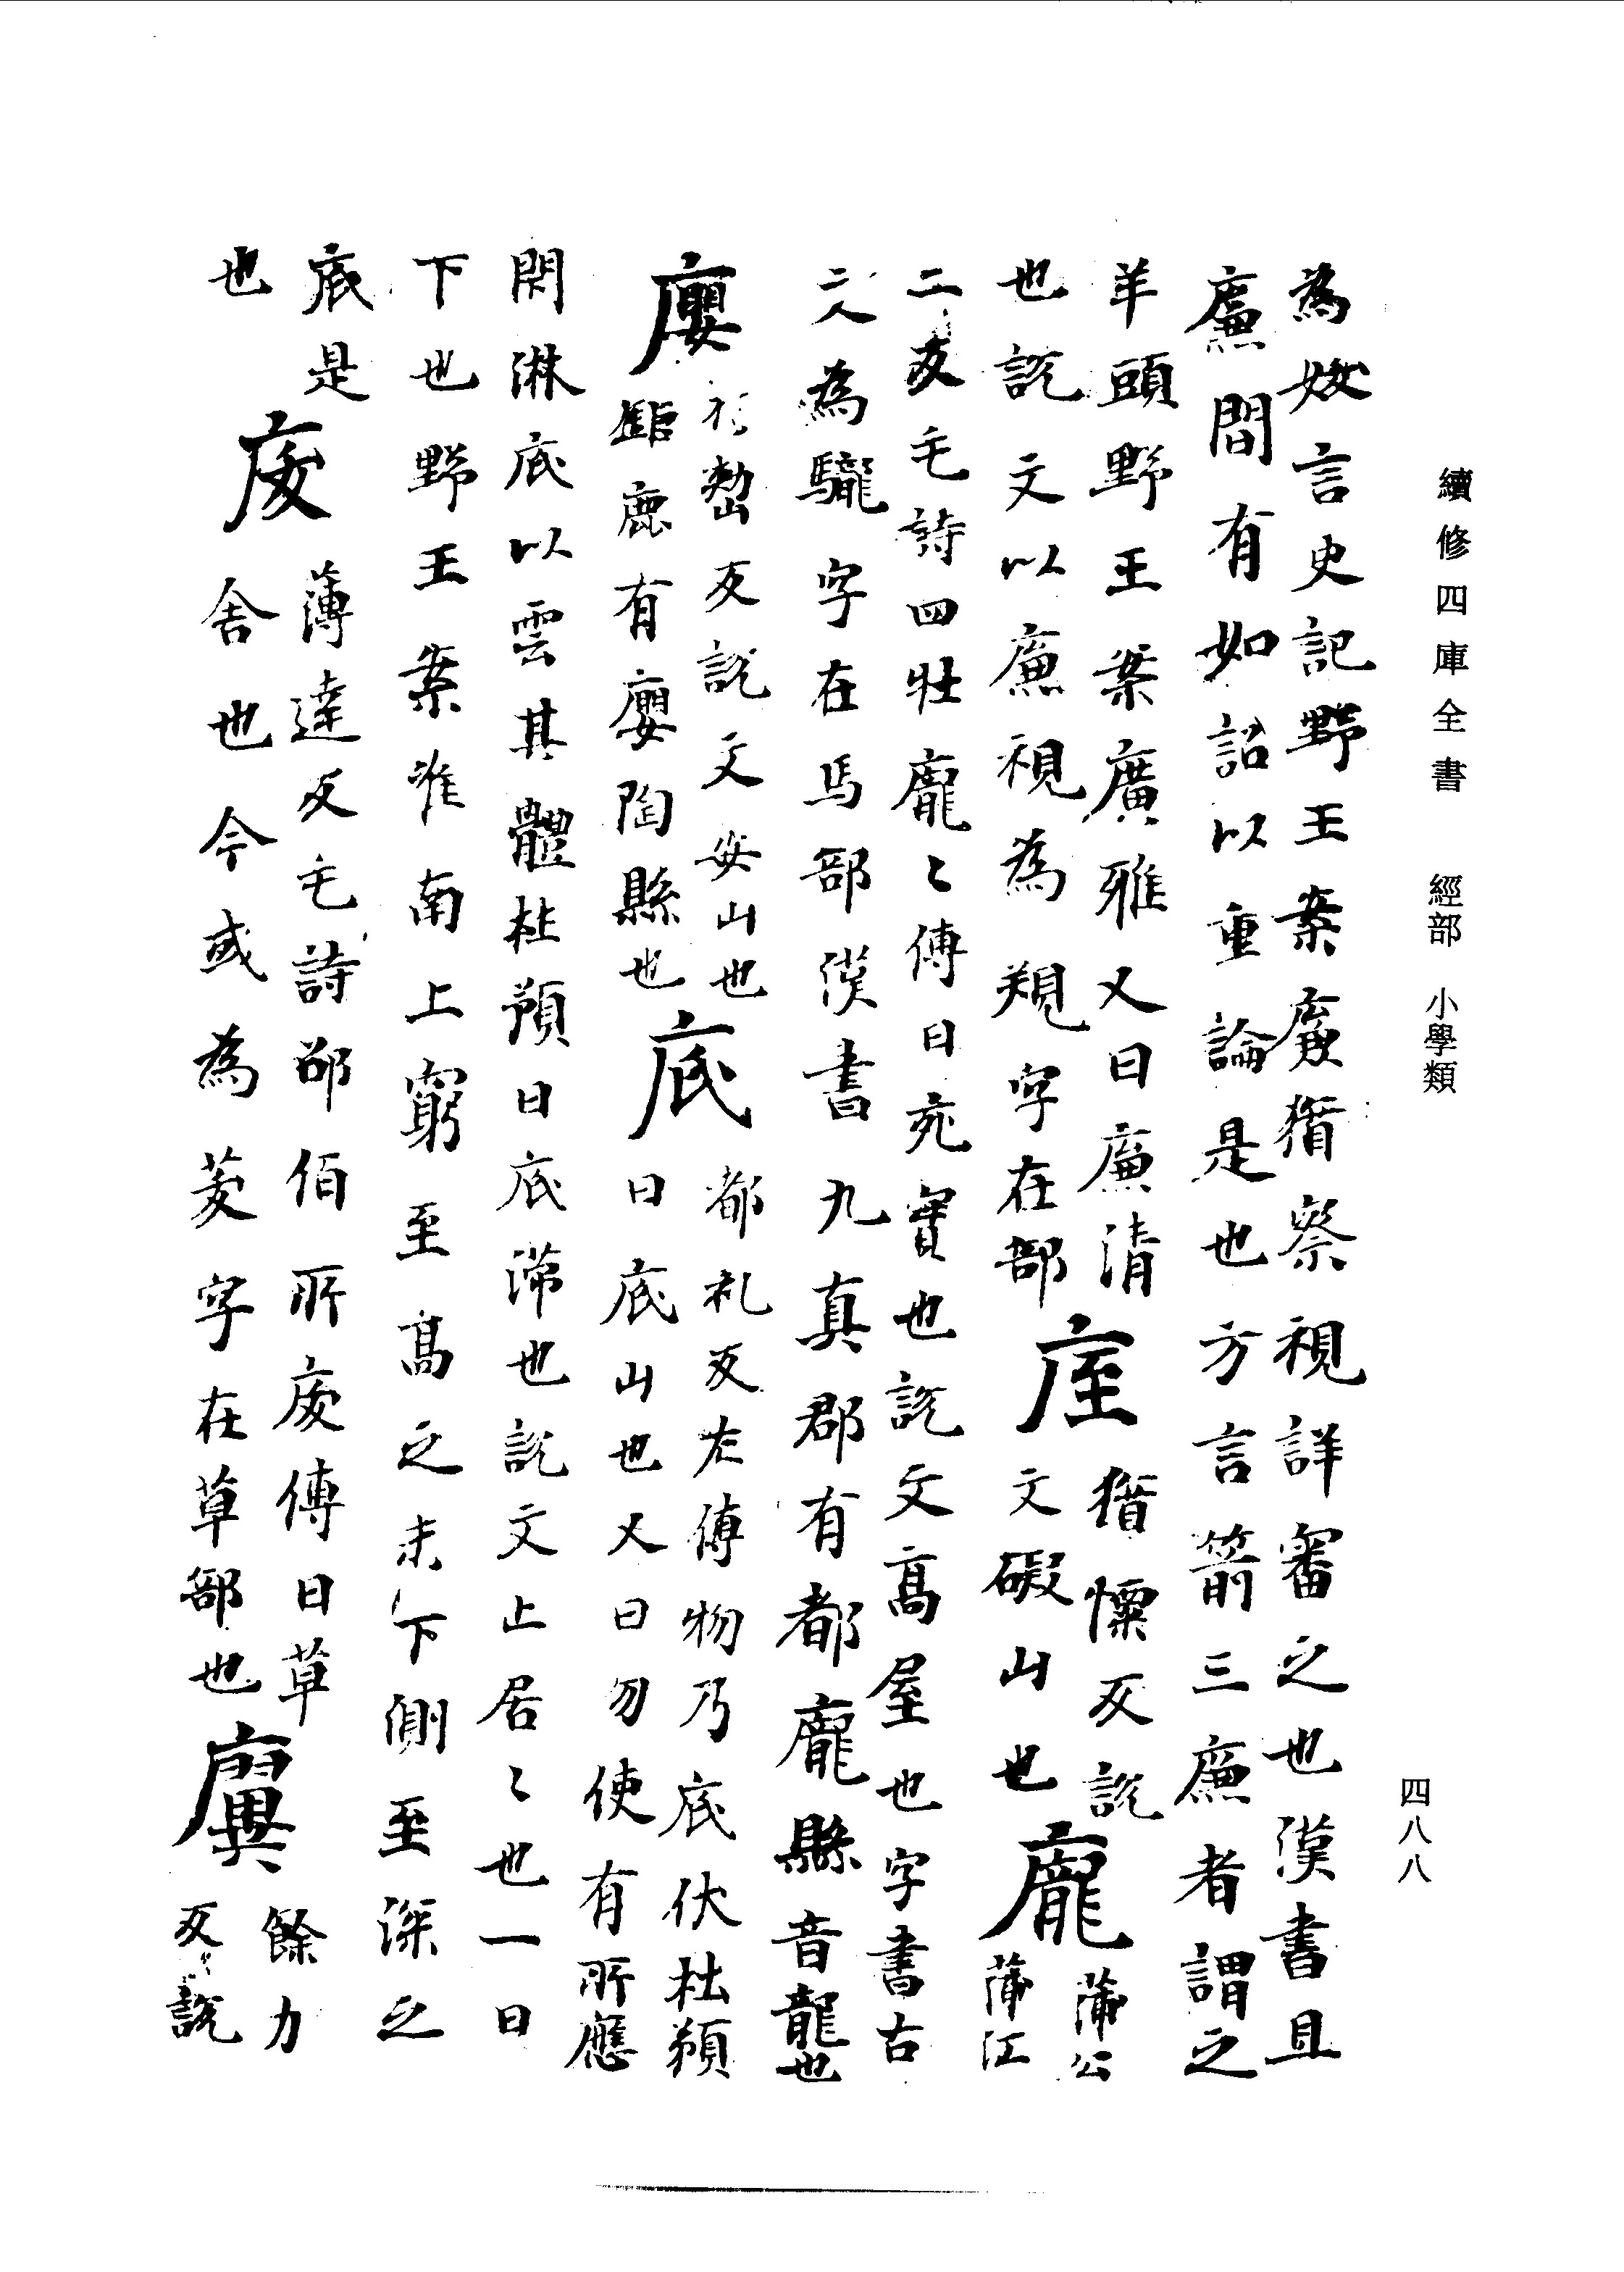 續修四庫全書 經部 小學類
四八八
為姣言史記野王案廉猶察視詳審之也漢書且
廉間有如詔以重論是也方言箭三廉者謂之
羊頭野王案廣雅又曰廉清
也說文以廉視為覝字在部
庢
猶慄反說
文礙山也
龐
蒲公
蒲江
二反毛詩四牡龐〻傅曰充實也說文高屋也字書古
文為驡字在馬部漢書九真郡有都龐縣音龍也
廮
反說文安山也
鉅鹿有廮陶縣也
底
都礼反左傅物乃底伏杜預
曰底山也又曰勿使有所應
閇淋底以雲其體杜預曰底滯也說文止居〻也一曰
下也野王案淮南上窮至髙之末下側至深之
底是
也
废
薄達反毛詩邵伯所废傅曰草
舍也今或為茇字在草部也
廙
餘力
反說